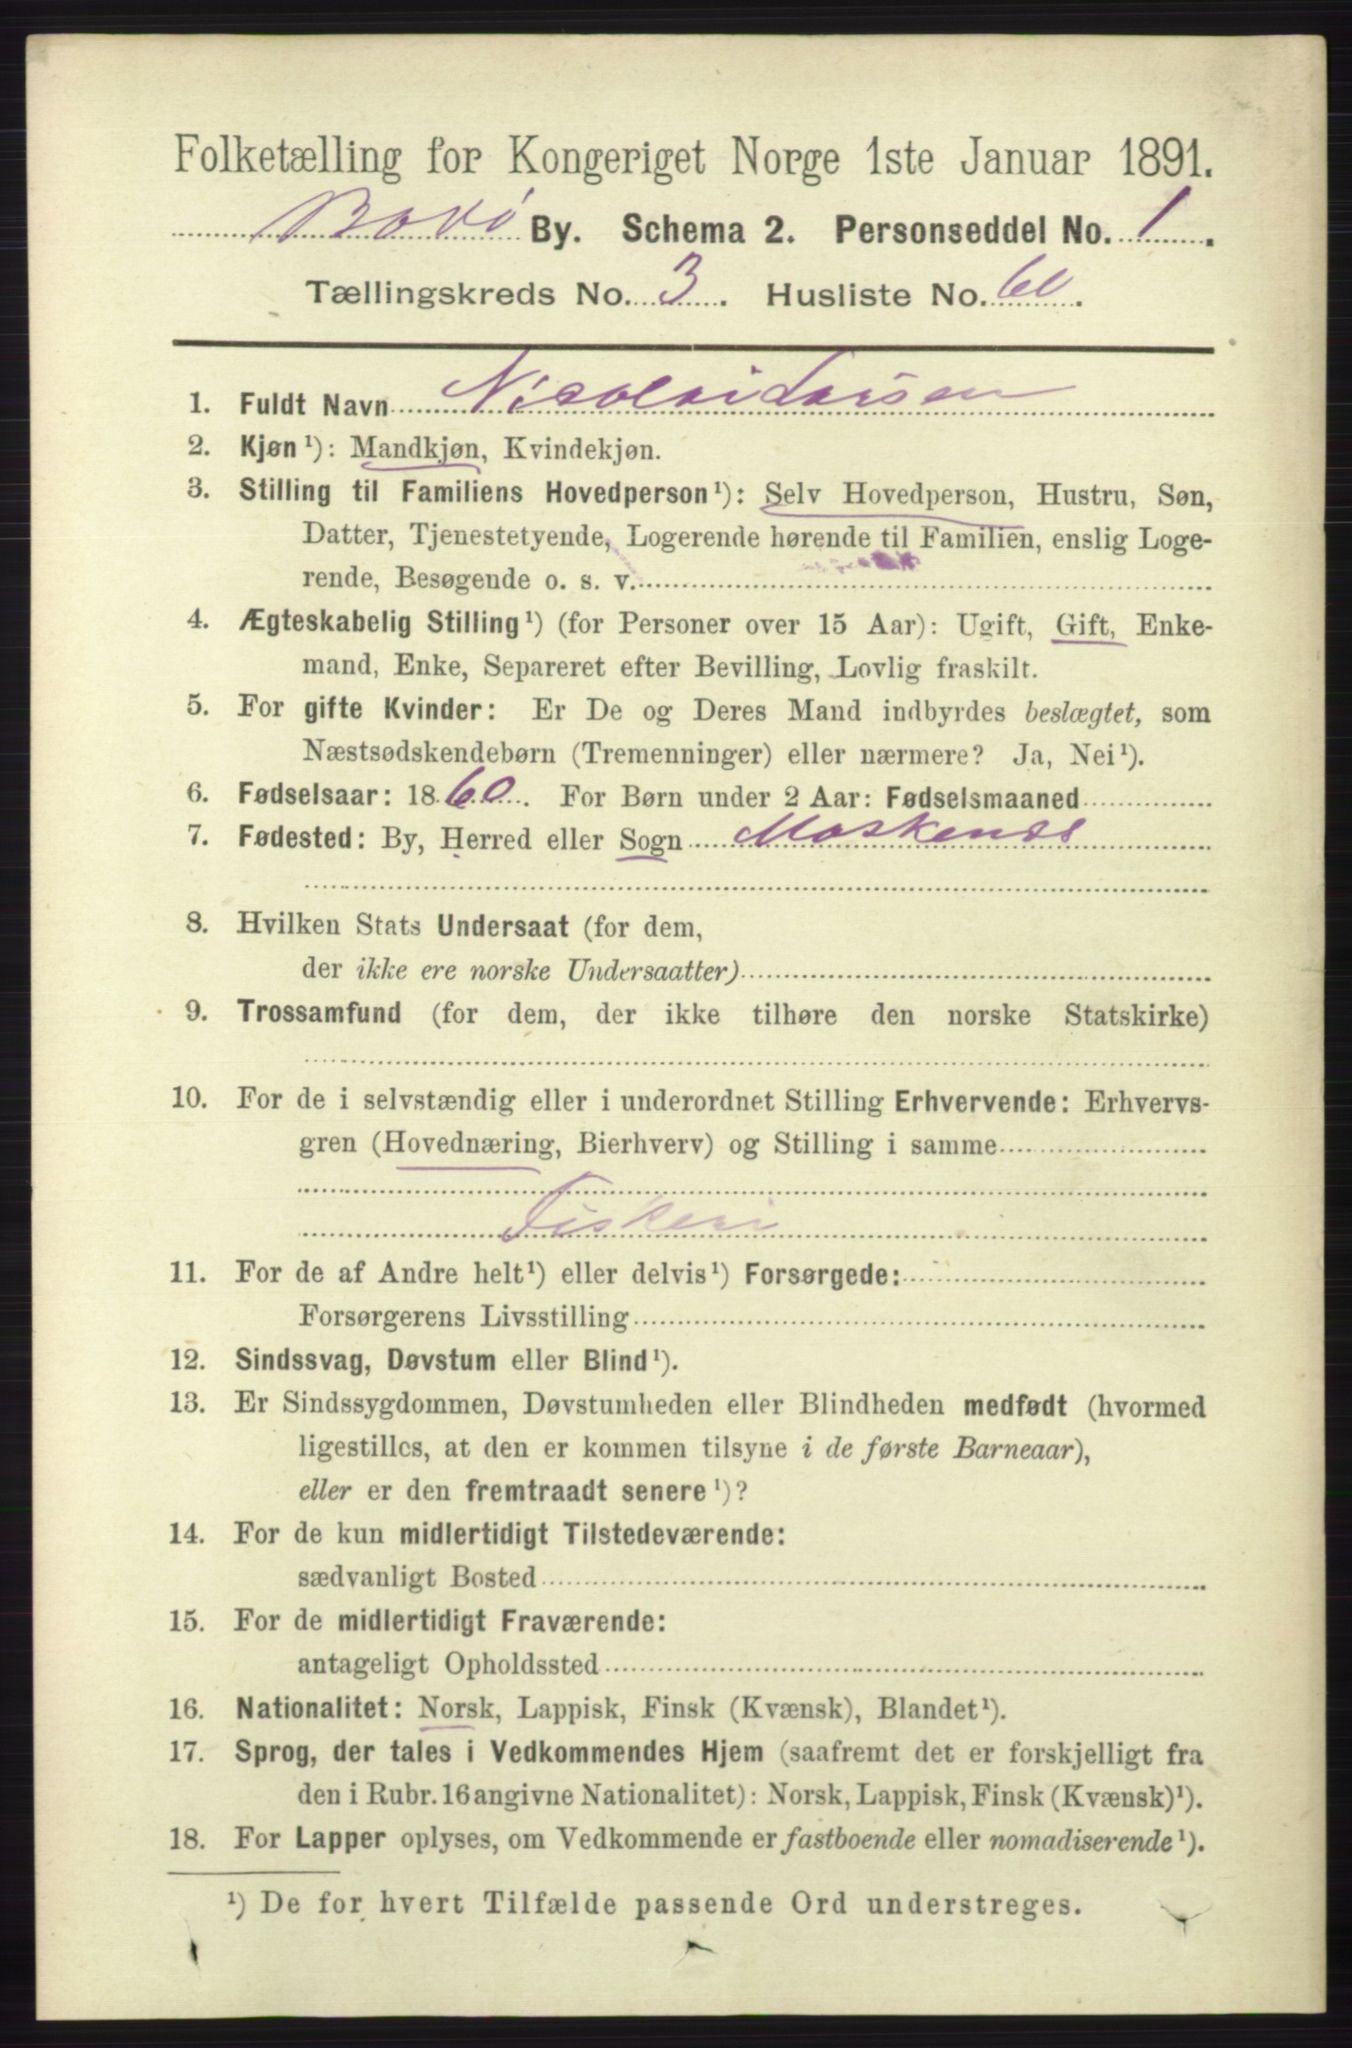 Folketælling for Kongeriget Norge 1ste Januar 1891.
Bodø By. Schema 2. Personseddel No. 1.
Tællingskreds No. 3. Husliste No. 60.
1. Fuldt Navn Nicolai Larsen
2. Kjøn ¹): Mandkjøn, Kvindekjøn.
3. Stilling til Familiens Hovedperson ¹): Selv Hovedperson, Hustru, Søn,
Datter, Tjenestetyende, Logerende hørende til Familien, enslig Loge-
rende, Besøgende o. s. v.
4. Ægteskabelig Stilling ¹) (for Personer over 15 Aar): Ugift, Gift, Enke-
mand, Enke, Separeret efter Bevilling, Lovlig fraskilt.
5. For gifte Kvinder: Er De og Deres Mand indbyrdes beslægtet, som
Næstsødskendebørn (Tremenninger) eller nærmere? Ja, Nei ¹).
6. Fødselsaar: 1860. For Børn under 2 Aar: Fødselsmaaned
7. Fødested: By, Herred eller Sogn Moskenes
8. Hvilken Stats Undersaat (for dem,
der ikke ere norske Undersaatter)
9. Trossamfund (for dem, der ikke tilhøre den norske Statskirke)
10. For de i selvstændig eller i underordnet Stilling Erhvervende: Erhvervs-
gren (Hovednæring, Bierhverv) og Stilling i samme
Fiskeri
11. For de af Andre helt ¹) eller delvis ¹) Forsørgede:
Forsørgerens Livsstilling
12. Sindssvag, Døvstum eller Blind ¹).
13. Er Sindssygdommen, Døvstumheden eller Blindheden medfødt (hvormed
ligestilles, at den er kommen tilsyne i de første Barneaar),
eller er den fremtraadt senere ¹)?
14. For de kun midlertidigt Tilstedeværende:
sædvanligt Bosted
15. For de midlertidigt Fraværende:
antageligt Opholdssted
16. Nationalitet: Norsk, Lappisk, Finsk (Kvænsk), Blandet ¹).
17. Sprog, der tales i Vedkommendes Hjem (saafremt det er forskjelligt fra
den i Rubr. 16 angivne Nationalitet): Norsk, Lappisk, Finsk (Kvænsk) ¹).
18. For Lapper oplyses, om Vedkommende er fastboende eller nomadiserende ¹).
¹) De for hvert Tilfælde passende Ord understreges.